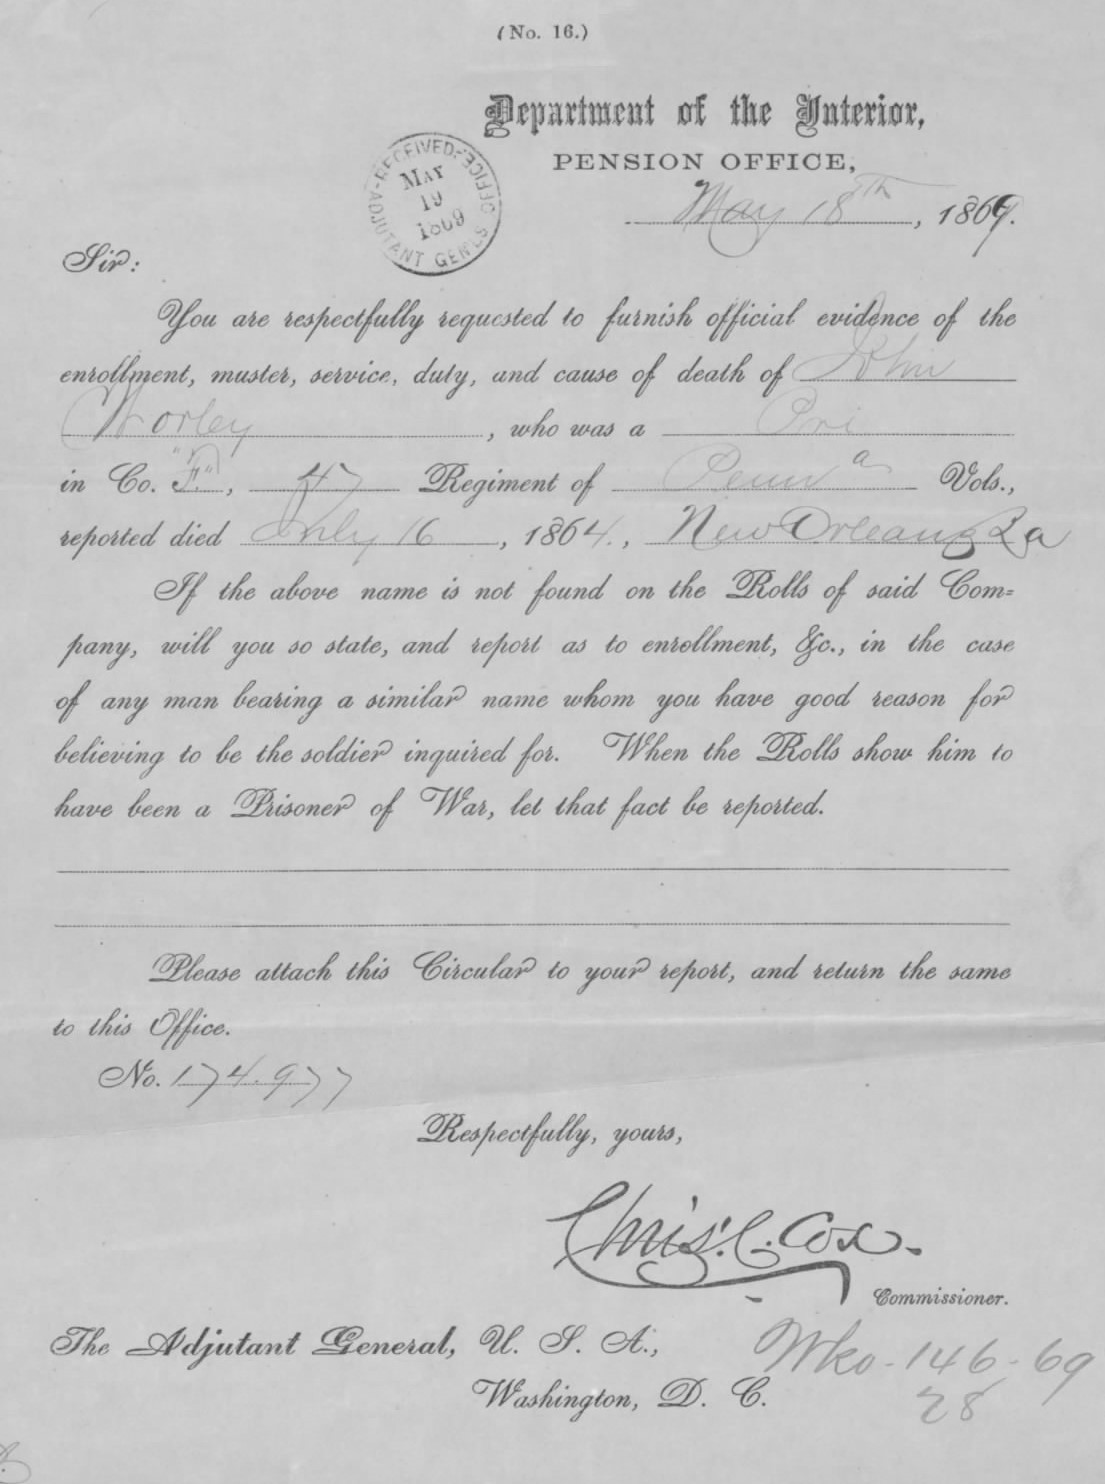 (No. 16.)
Department of the Interior,
PENSION OFFICE,
May 18th, 1869.
RECEIVED
MAY
19
1869
ADJUTANT GEN'LS OFFICE
Sir:
You are respectfully requested to furnish official evidence of the
enrollment, muster, service, duty, and cause of death of John
Worley, who was a Pri
in Co. "F.", 47 Regiment of Penna Vols.,
reported died July 16, 1864., New Orleans La
If the above name is not found on the Rolls of said Com=
pany, will you so state, and report as to enrollment, &c., in the case
of any man bearing a similar name whom you have good reason for
believing to be the soldier inquired for. When the Rolls show him to
have been a Prisoner of War, let that fact be reported.
Please attach this Circular to your report, and return the same
to this Office.
No. 174.977
Respectfully, yours,
Chris. C. Cox.
Commissioner.
The Adjutant General, U. S. A.,
Washington, D. C.
146-69
28